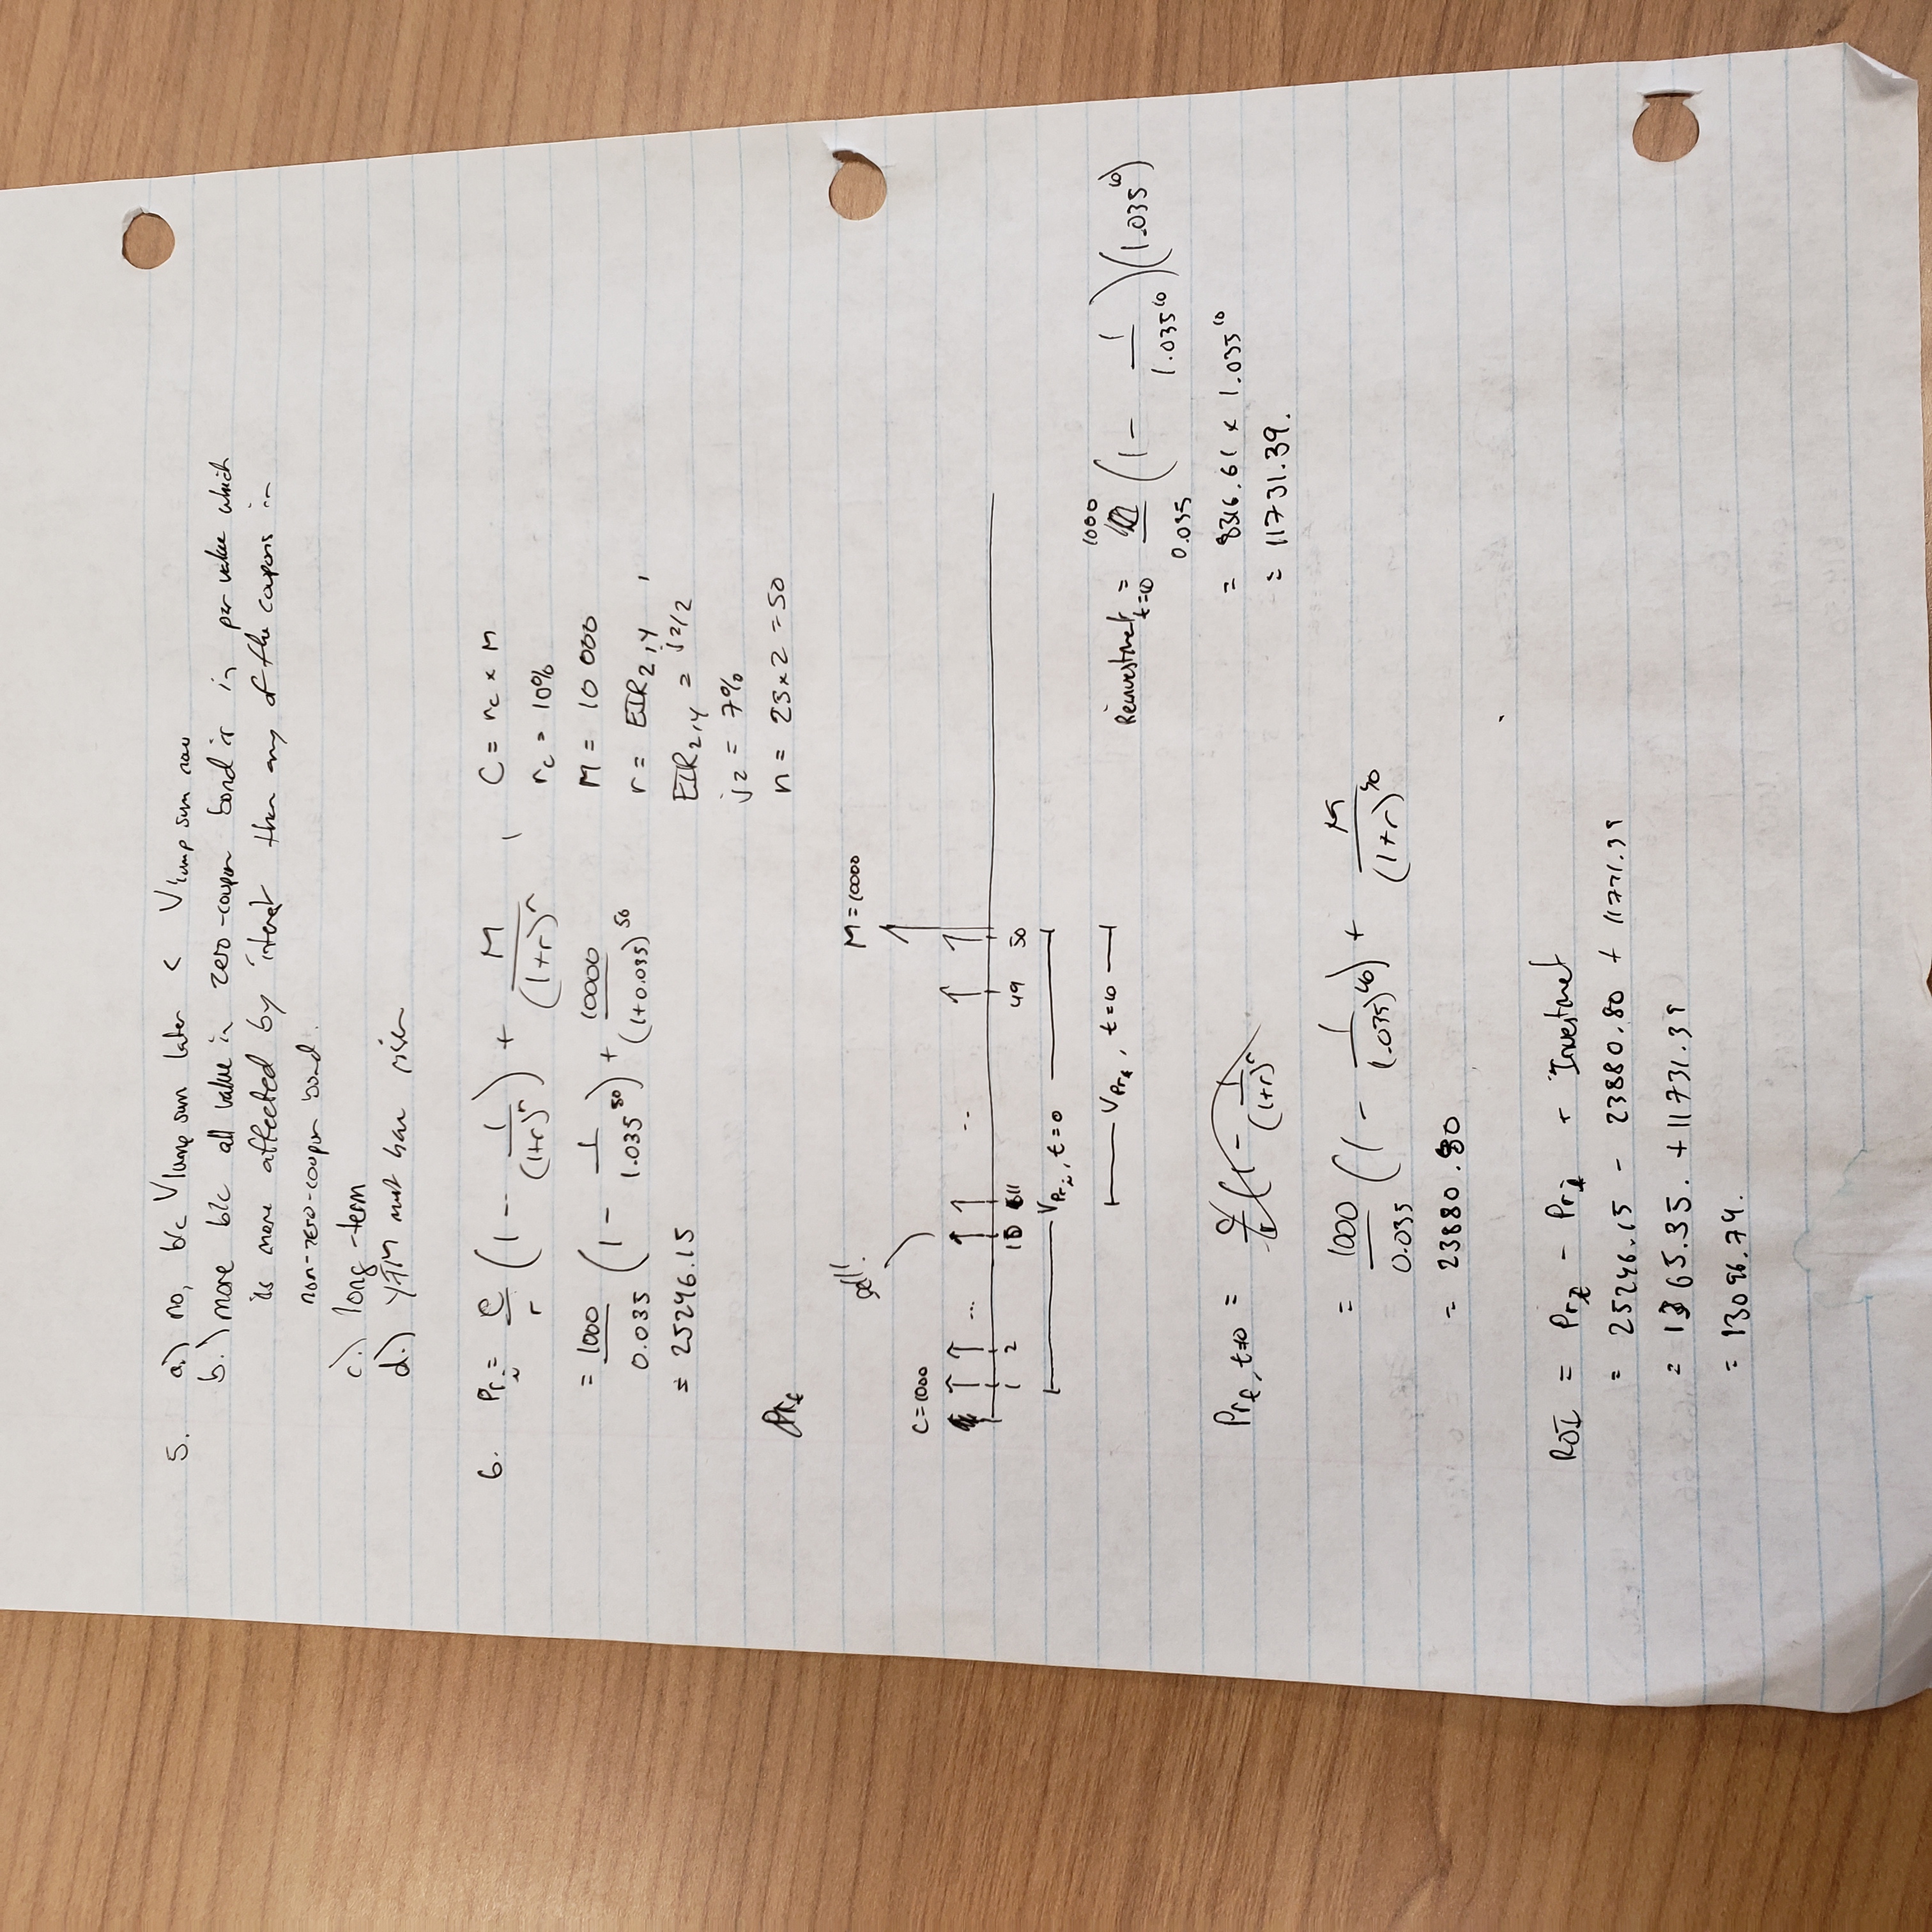 5. a.) no, b/c V lump sum later < V lump sum now
b.) more b/c all value in zero-coupon bond is in par value which
is more affected by interest than any of the coupons in
non-zero-coupon bond.
c.) long-term
d.) YTM must have risen
6. Pr_i = C/r (1 - 1/(1+r)^n) + M/(1+r)^n , C = r_c x M
r_c = 10%
= 1000/0.035 (1 - 1/1.035^50) + 10000/(1+0.035)^50
M = 10 000
r = EIR_2,Y ,
= 25246.15
EIR_2,Y = j2/2
j2 = 7%
n = 25x2 = 50
Pr_f
sell!
M = 10000
C = 1000
... ..
1 2 10 11 49 50
V_Pr_i, t=0
V_Pr_f, t=10
Reinvestment_t=10 = 1000/0.035 (1 - 1/1.035^10)(1.035^10)
= 8316.61 x 1.035^10
= 11731.39.
Pr_f, t=10 = C/r (1 - 1/(1+r)^n
= 1000/0.035 (1 - 1/(1.035)^40) + M/(1+r)^40
= 23880.80
ROI = Pr_f - Pr_i + Investment
= 25246.15 - 23880.80 + 11731.39
= 1365.35. + 11731.39
= 13096.74.